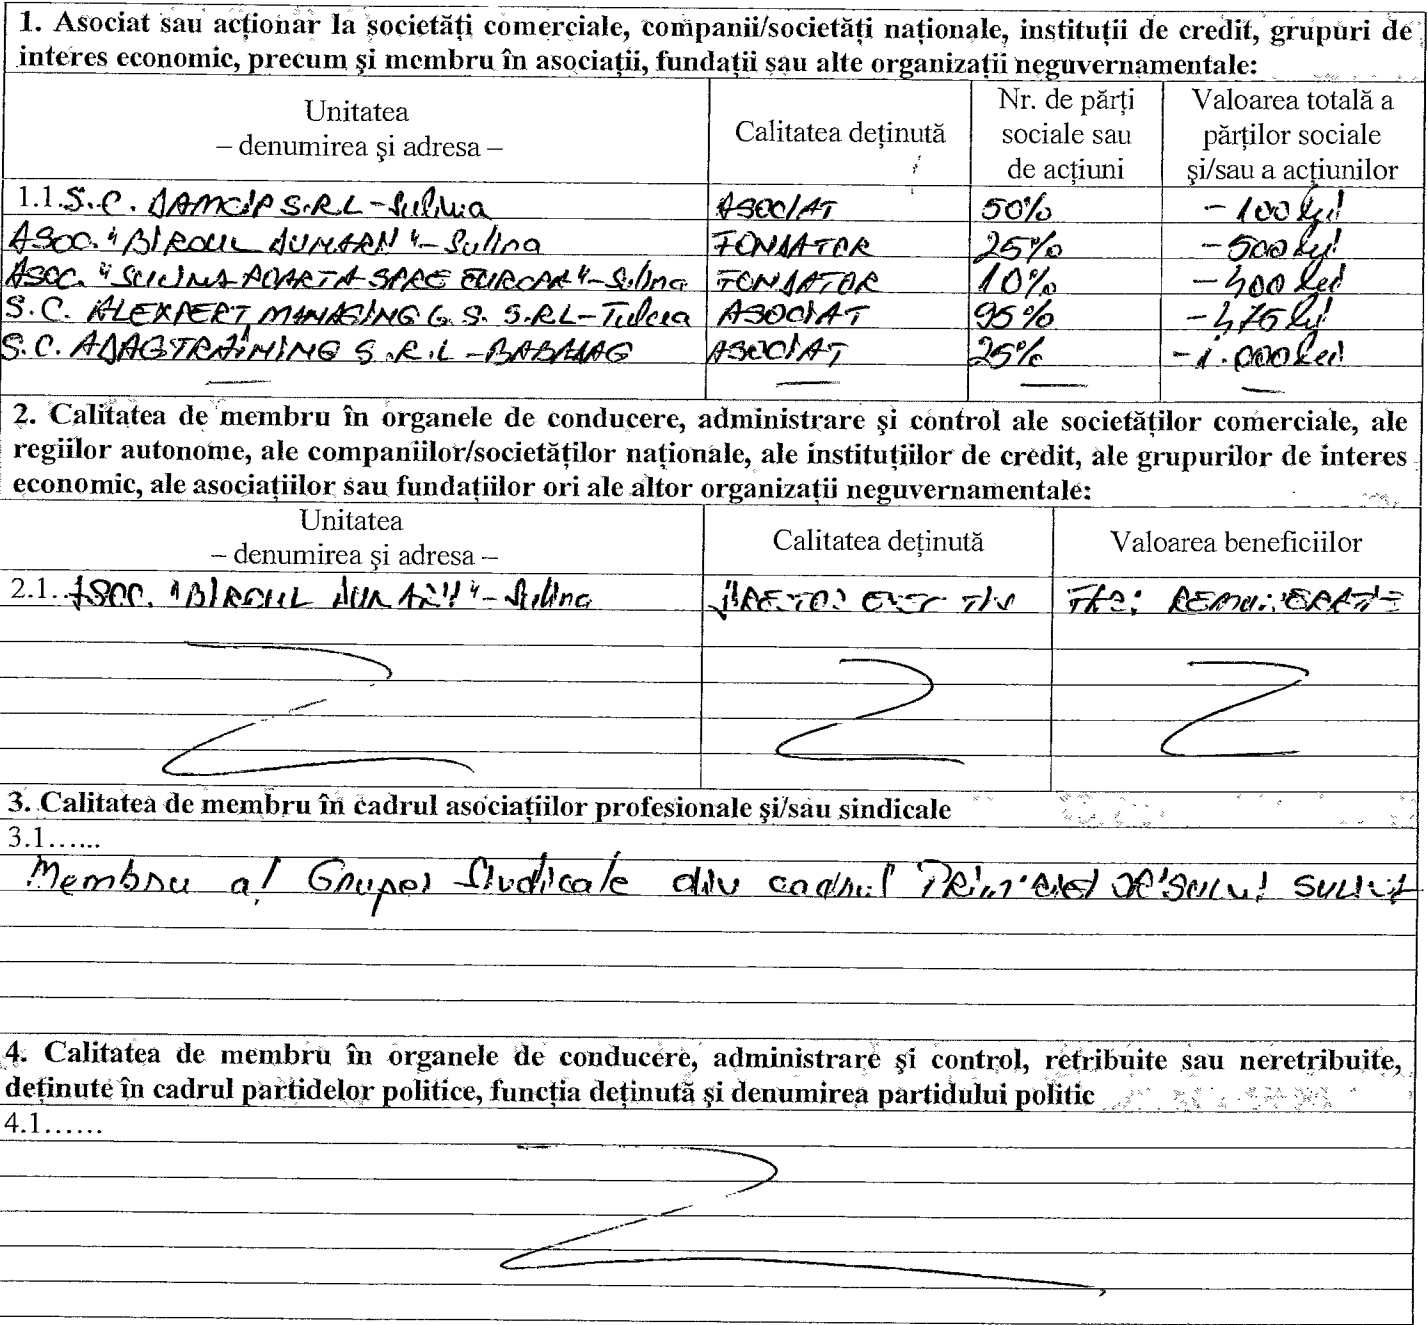 1. Asociat sau acţionar la societăţi comerciale, companii/societăţi naţionale, instituţii de credit, grupuri de
interes economic, precum şi membru în asociaţii, fundaţii sau alte organizaţii neguvernamentale:
Unitatea
– denumirea şi adresa –
Calitatea deţinută
Nr. de părţi
sociale sau
de acţiuni
Valoarea totală a
părţilor sociale
şi/sau a acţiunilor
1.1. S.C. DAMCIP S.R.L - Sulina ASOCIAT 50% - 100 lei
ASOC. "BIROUL DUNARII" - Sulina FONDATOR 25% - 500 lei
ASOC. "SULINA POARTA SPRE EUROPA" - Sulina FONDATOR 10% lei
S.C. ALEXPERT MANAGING G.S. S.RL - Tulcea ASOCIAT 95% - 475 lei
S.C. ADAGTRAINING S.R.L - BABADAG ASOCIAT 25% - 1.000 lei
2. Calitatea de membru în organele de conducere, administrare şi control ale societăţilor comerciale, ale
regiilor autonome, ale companiilor/societăţilor naţionale, ale instituţiilor de credit, ale grupurilor de interes
economic, ale asociaţiilor sau fundaţiilor ori ale altor organizaţii neguvernamentale:
Unitatea
– denumirea şi adresa –
Calitatea deţinută
Valoarea beneficiilor
2.1. ASOC. "BIROUL DUNARII" - Sulina DIRECTOR EXECUTIV FARA REMUNERATIE
3. Calitatea de membru în cadrul asociaţiilor profesionale şi/sau sindicale
3.1......
Membru al Grupei Sindicale din cadrul PRIMARIEI ORASULUI SULINA
4. Calitatea de membru în organele de conducere, administrare şi control, retribuite sau neretribuite,
deţinute în cadrul partidelor politice, funcţia deţinută şi denumirea partidului politic
4.1......